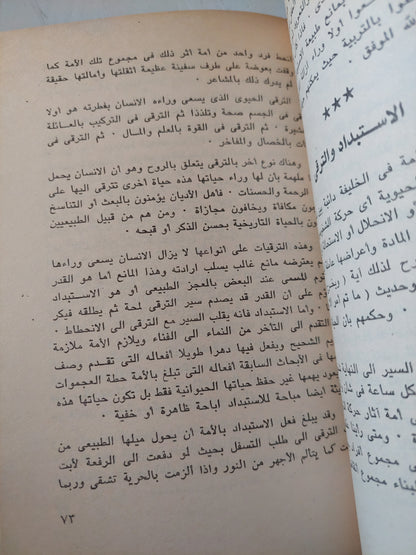 انحط فرد واحد من أمة أثر ذلك في مجموع تلك الأمة كما
وقفت بعوضة على طرف سفينة عظيمة اثقلتها وأمالتها حقيقة
لم يدرك ذلك بالمشاعر .
الترقى الحيوى الذى يسعى وراءه الانسان بفطرته هو أولا
فى الجسم صحة وتلذذا ثم الترقى فى التركيب بالعائلة
ثم الترقى فى القوة بالعلم والمال ــ ثم الترقى فى
بالخصال والمفاخر .
وهناك نوع آخر بالترقى يتعلق بالروح وهو أن الانسان يحمل
ملهمة بأن لها وراء حياتها هذه حياة اخرى تترقى اليها على
الرحمة والحسنات . فأهل الأديان يؤمنون بالبعث أو التناسخ
مكافأة ويخافون مجازاة . ومن هم من قبيل الطبيعيين
بالحياة التاريخية بحسن الذكر أو قبحه .
وهذه الترقيات على أنواعها لا يزال الانسان يسعى وراءها
يعترضه مانع غالب يسلب ارادته وهذا المانع أما هو القدر
المسمى عند البعض بالعجز الطبيعى أو هو الاستبداد
على أن القدر قد يصدم سير الترقى لمحة ثم يطلقه فيكر
وأما الاستبداد فانه يقلب السير مع الترقى الى الانحطاط .
التقدم الى التأخر من النماء الى الفناء ويلازم الأمة ملازمة
الشحيح ويفعل فيها دهرا طويلا أفعاله التى تقدم وصف
فى الأبحاث السابقة أفعاله التى تبلغ بالأمة حطة العجموات
يهمها غير حفظ حياتها الحيوانية فقط بل تكون حياتها هذه
أيضا مباحة للاستبداد اباحة ظاهرة أو خفية .
وقد يبلغ فعل الاستبداد بالأمة أن يحول ميلها الطبيعى من
الترقى الى طلب التسفل بحيث لو دفعت الى الرفعة لأبت
كما يتألم الأجهر من النور واذا ألزمت بالحرية تشقى وربما
٧٣
أولا وراء
بالتربية حيث
الموفق .
***
الاستبداد والترقى
فى الخليقة دائبة
أى حركة الش
الانحلال أو الاستبدا
المادة وأعراضها
لذلك آية (
وحديث ( ما تم أم
وحكمهم بأن
السير الى النهاية
كل ساعة فى